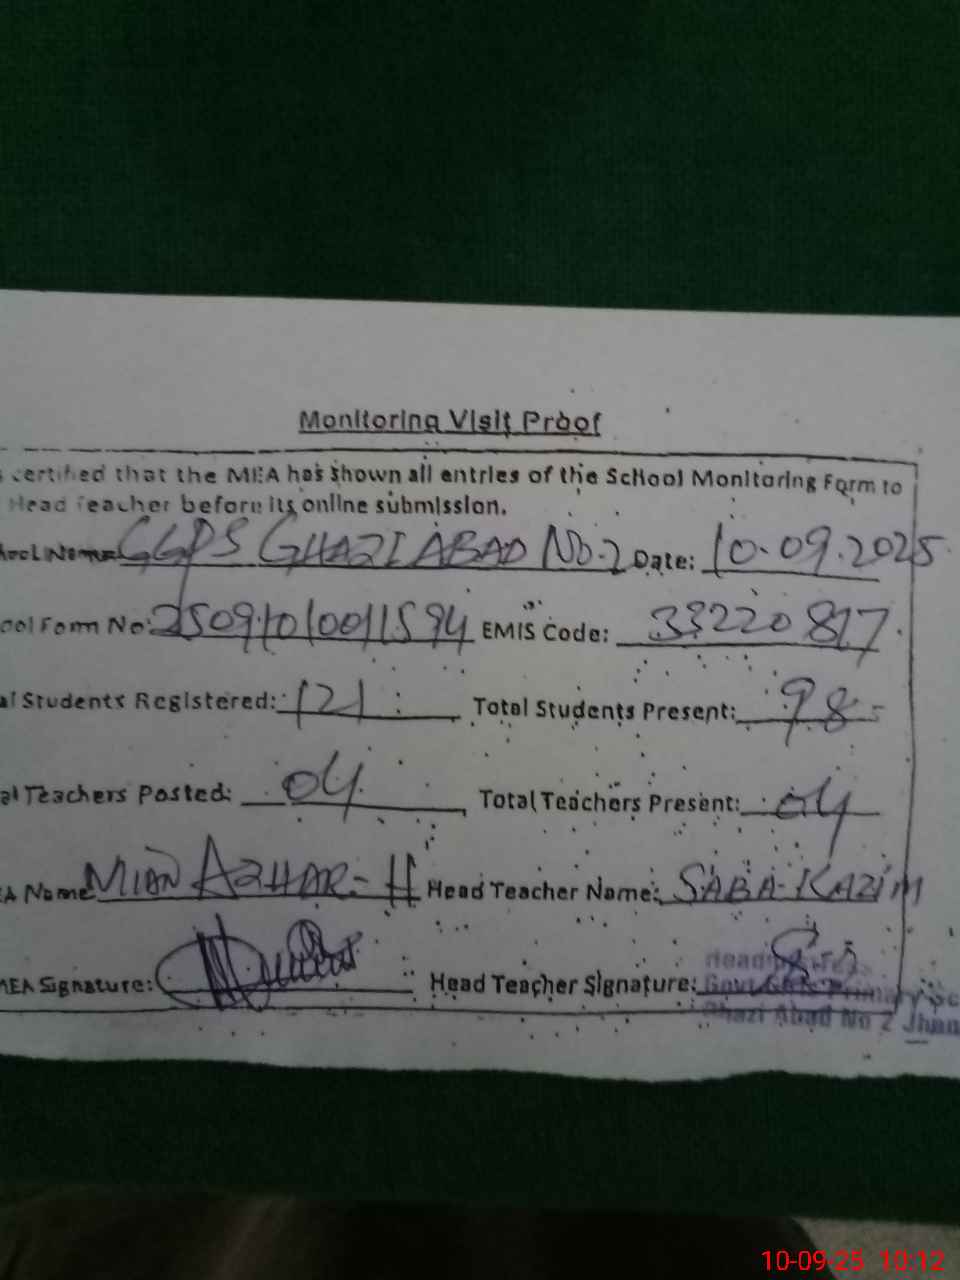 Monitoring Visit Proof
certified that the MEA has shown all entries of the School Monitoring Form to
Head Teacher before its online submission.
ool Name: GGPS GHAZI ABAD No.2 Date: 10.09.2025
ool Form No: EMIS Code: 33220817
al Students Registered: 121 Total Students Present: 98
al Teachers Posted: 04 Total Teachers Present: 04
EA Name MIAN AZHAR-H Head Teacher Name: SABA-KAZIM
MEA Signature: Head Teacher Signature:
Head
Govt Girls Primary Sc
Ghazi Abad No 2 Jhan
10-09-25 10:12